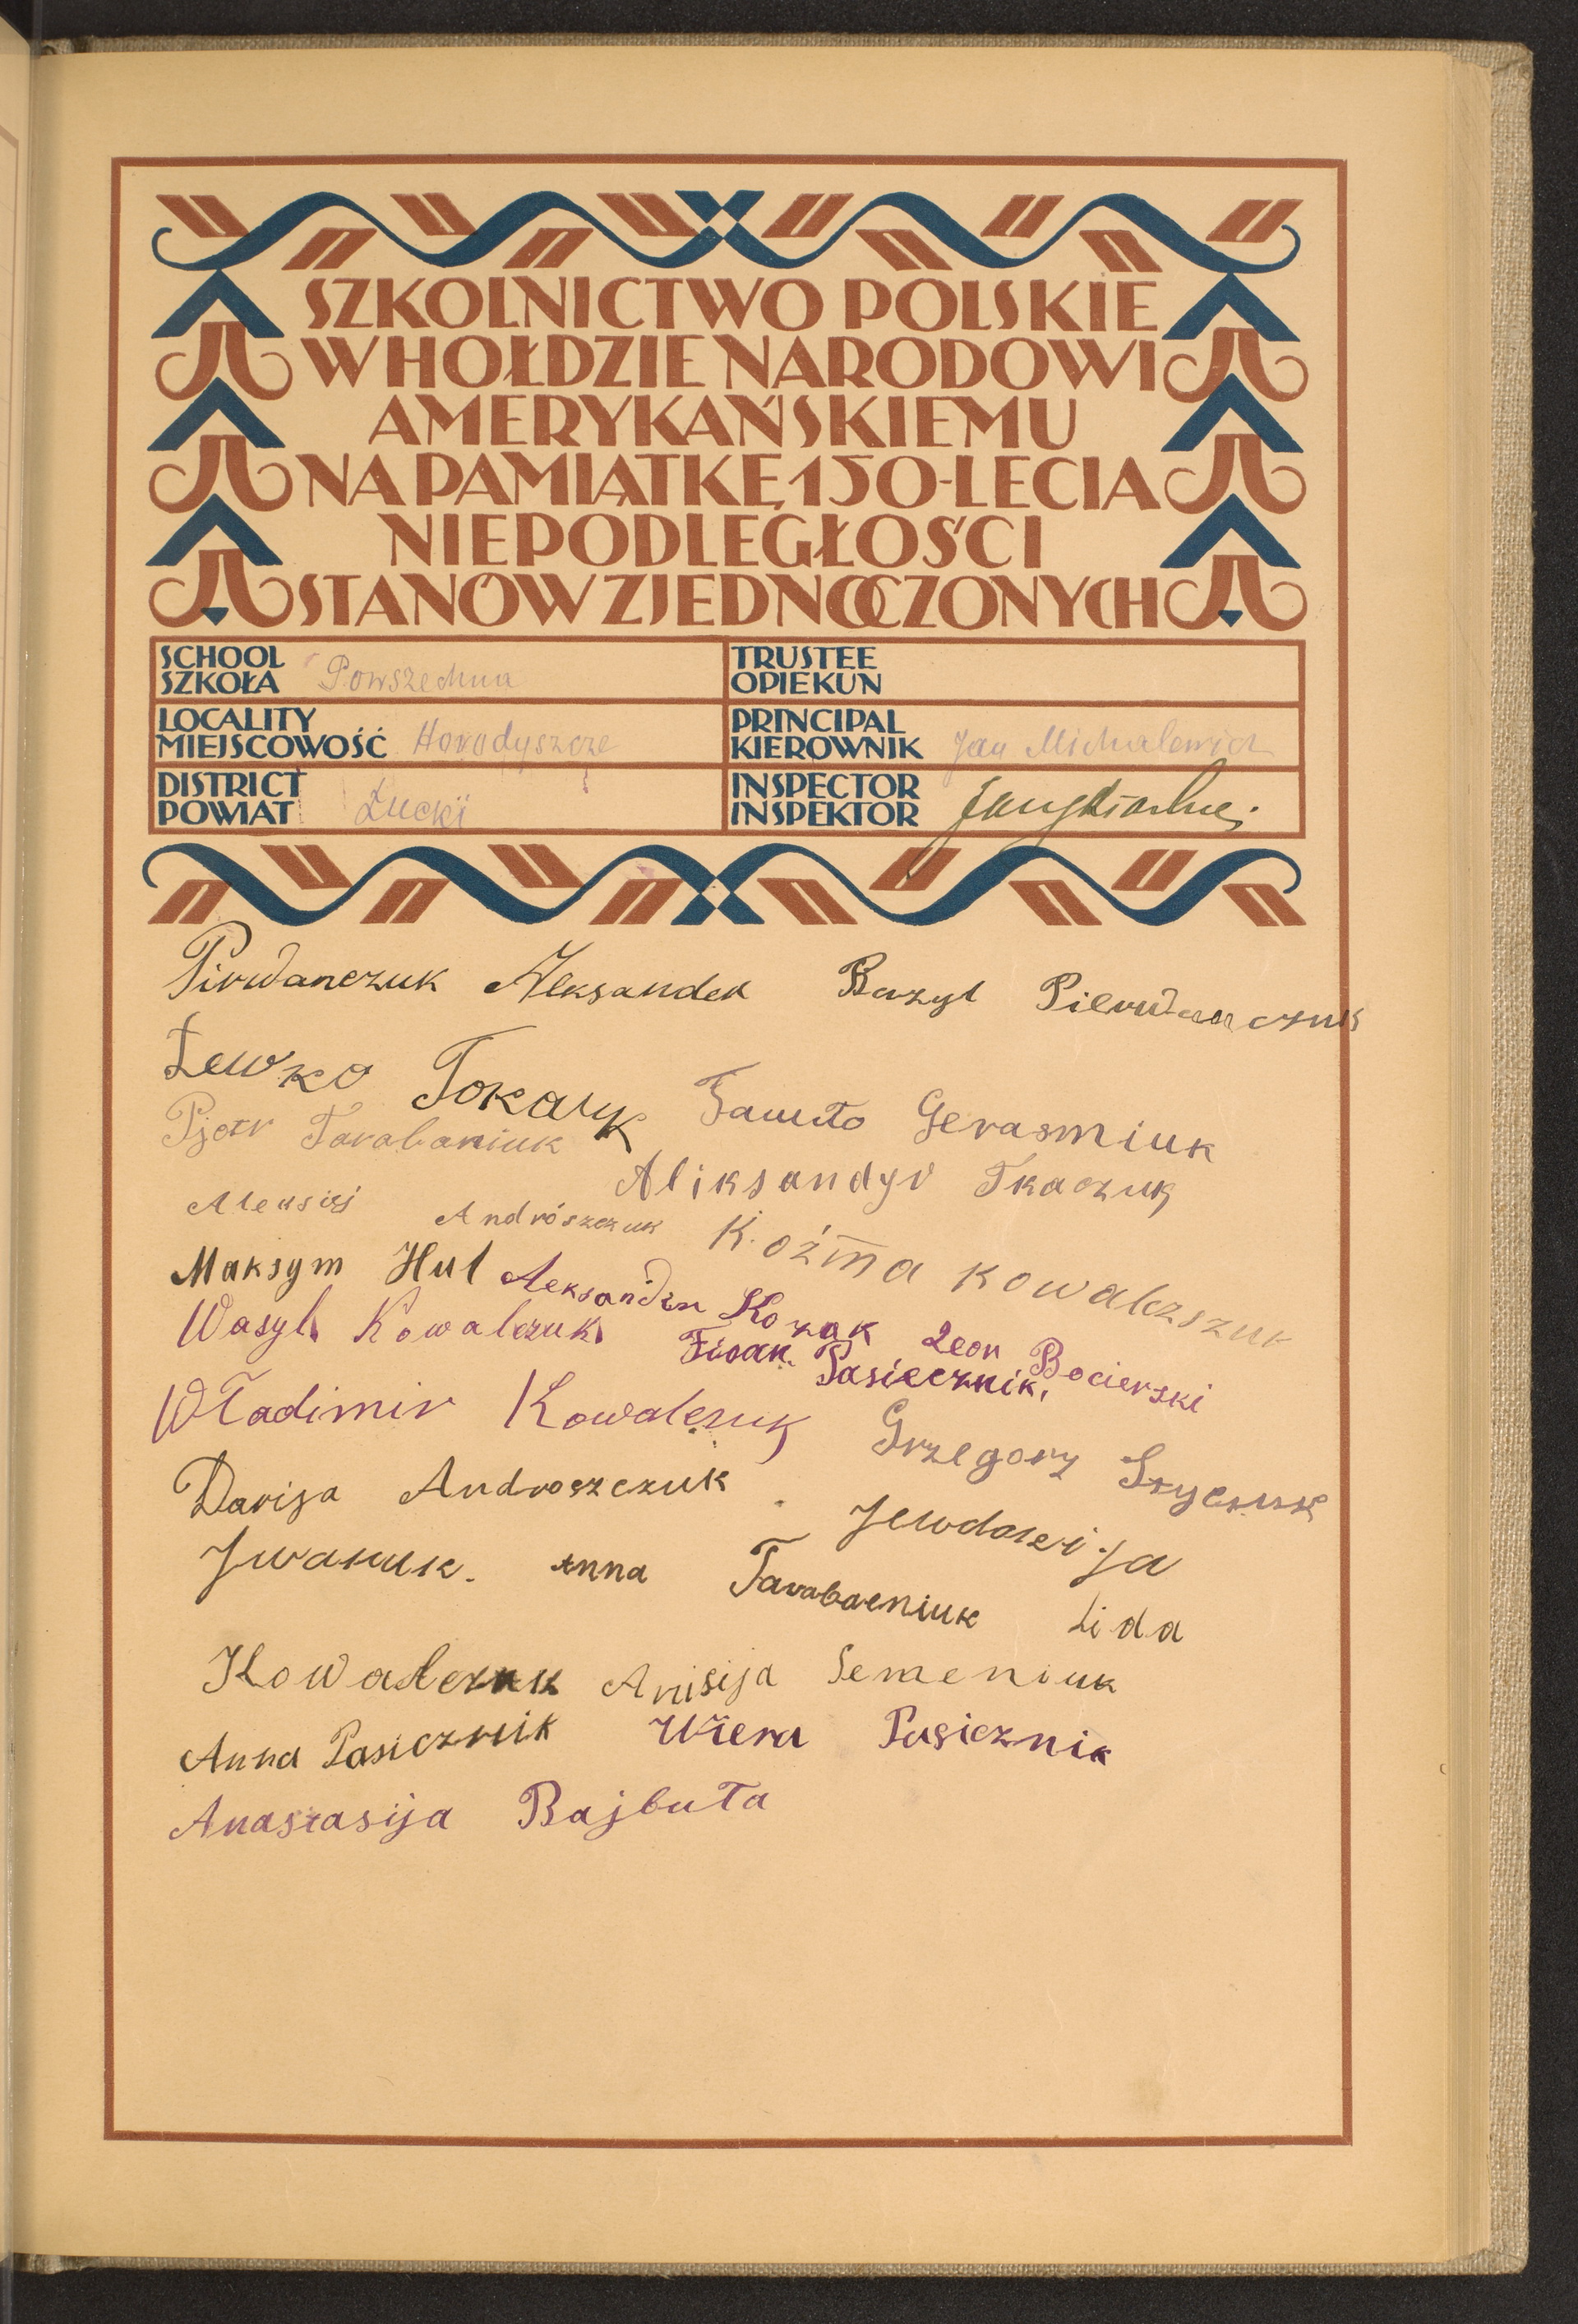 SZKOLNICTWO POLSKIE
W HOŁDZIE NARODOWI
AMERYKAŃSKIEMU
NA PAMIĄTKĘ 150-LECIA
NIEPODLEGŁOŚCI
STANÓW ZJEDNOCZONYCH
SCHOOL
SZKOŁA Powszechna
TRUSTEE
OPIEKUN
LOCALITY
MIEJSCOWOŚĆ Horodyszcze
PRINCIPAL
KIEROWNIK Jan Michalewicz
DISTRICT
POWIAT Łucki
INSPECTOR
INSPEKTOR
Pirwanczuk Aleksander Bazyl Pierwanczuk
Lewko Tokaryk Gerasmiuk
Pjotr Tarabaniuk
Aliksandyr Tkaczuk
Aleksiej Andrószczuk Koźma Kowalczszuk
Maksym Hul Aleksander Kozak Leon Bocierski
Wasyl Kowalczuk Pasiecznik.
Władimir Kowalczuk Grzegory
Darija Androszczuk Jewdokija
Iwaniuk. Anna Tarabaeniuk Lida
Kowalczuk Anisija Semeniuk
Anna Pasicznik Wiera Pasicznik
Anastasija Bajbuła